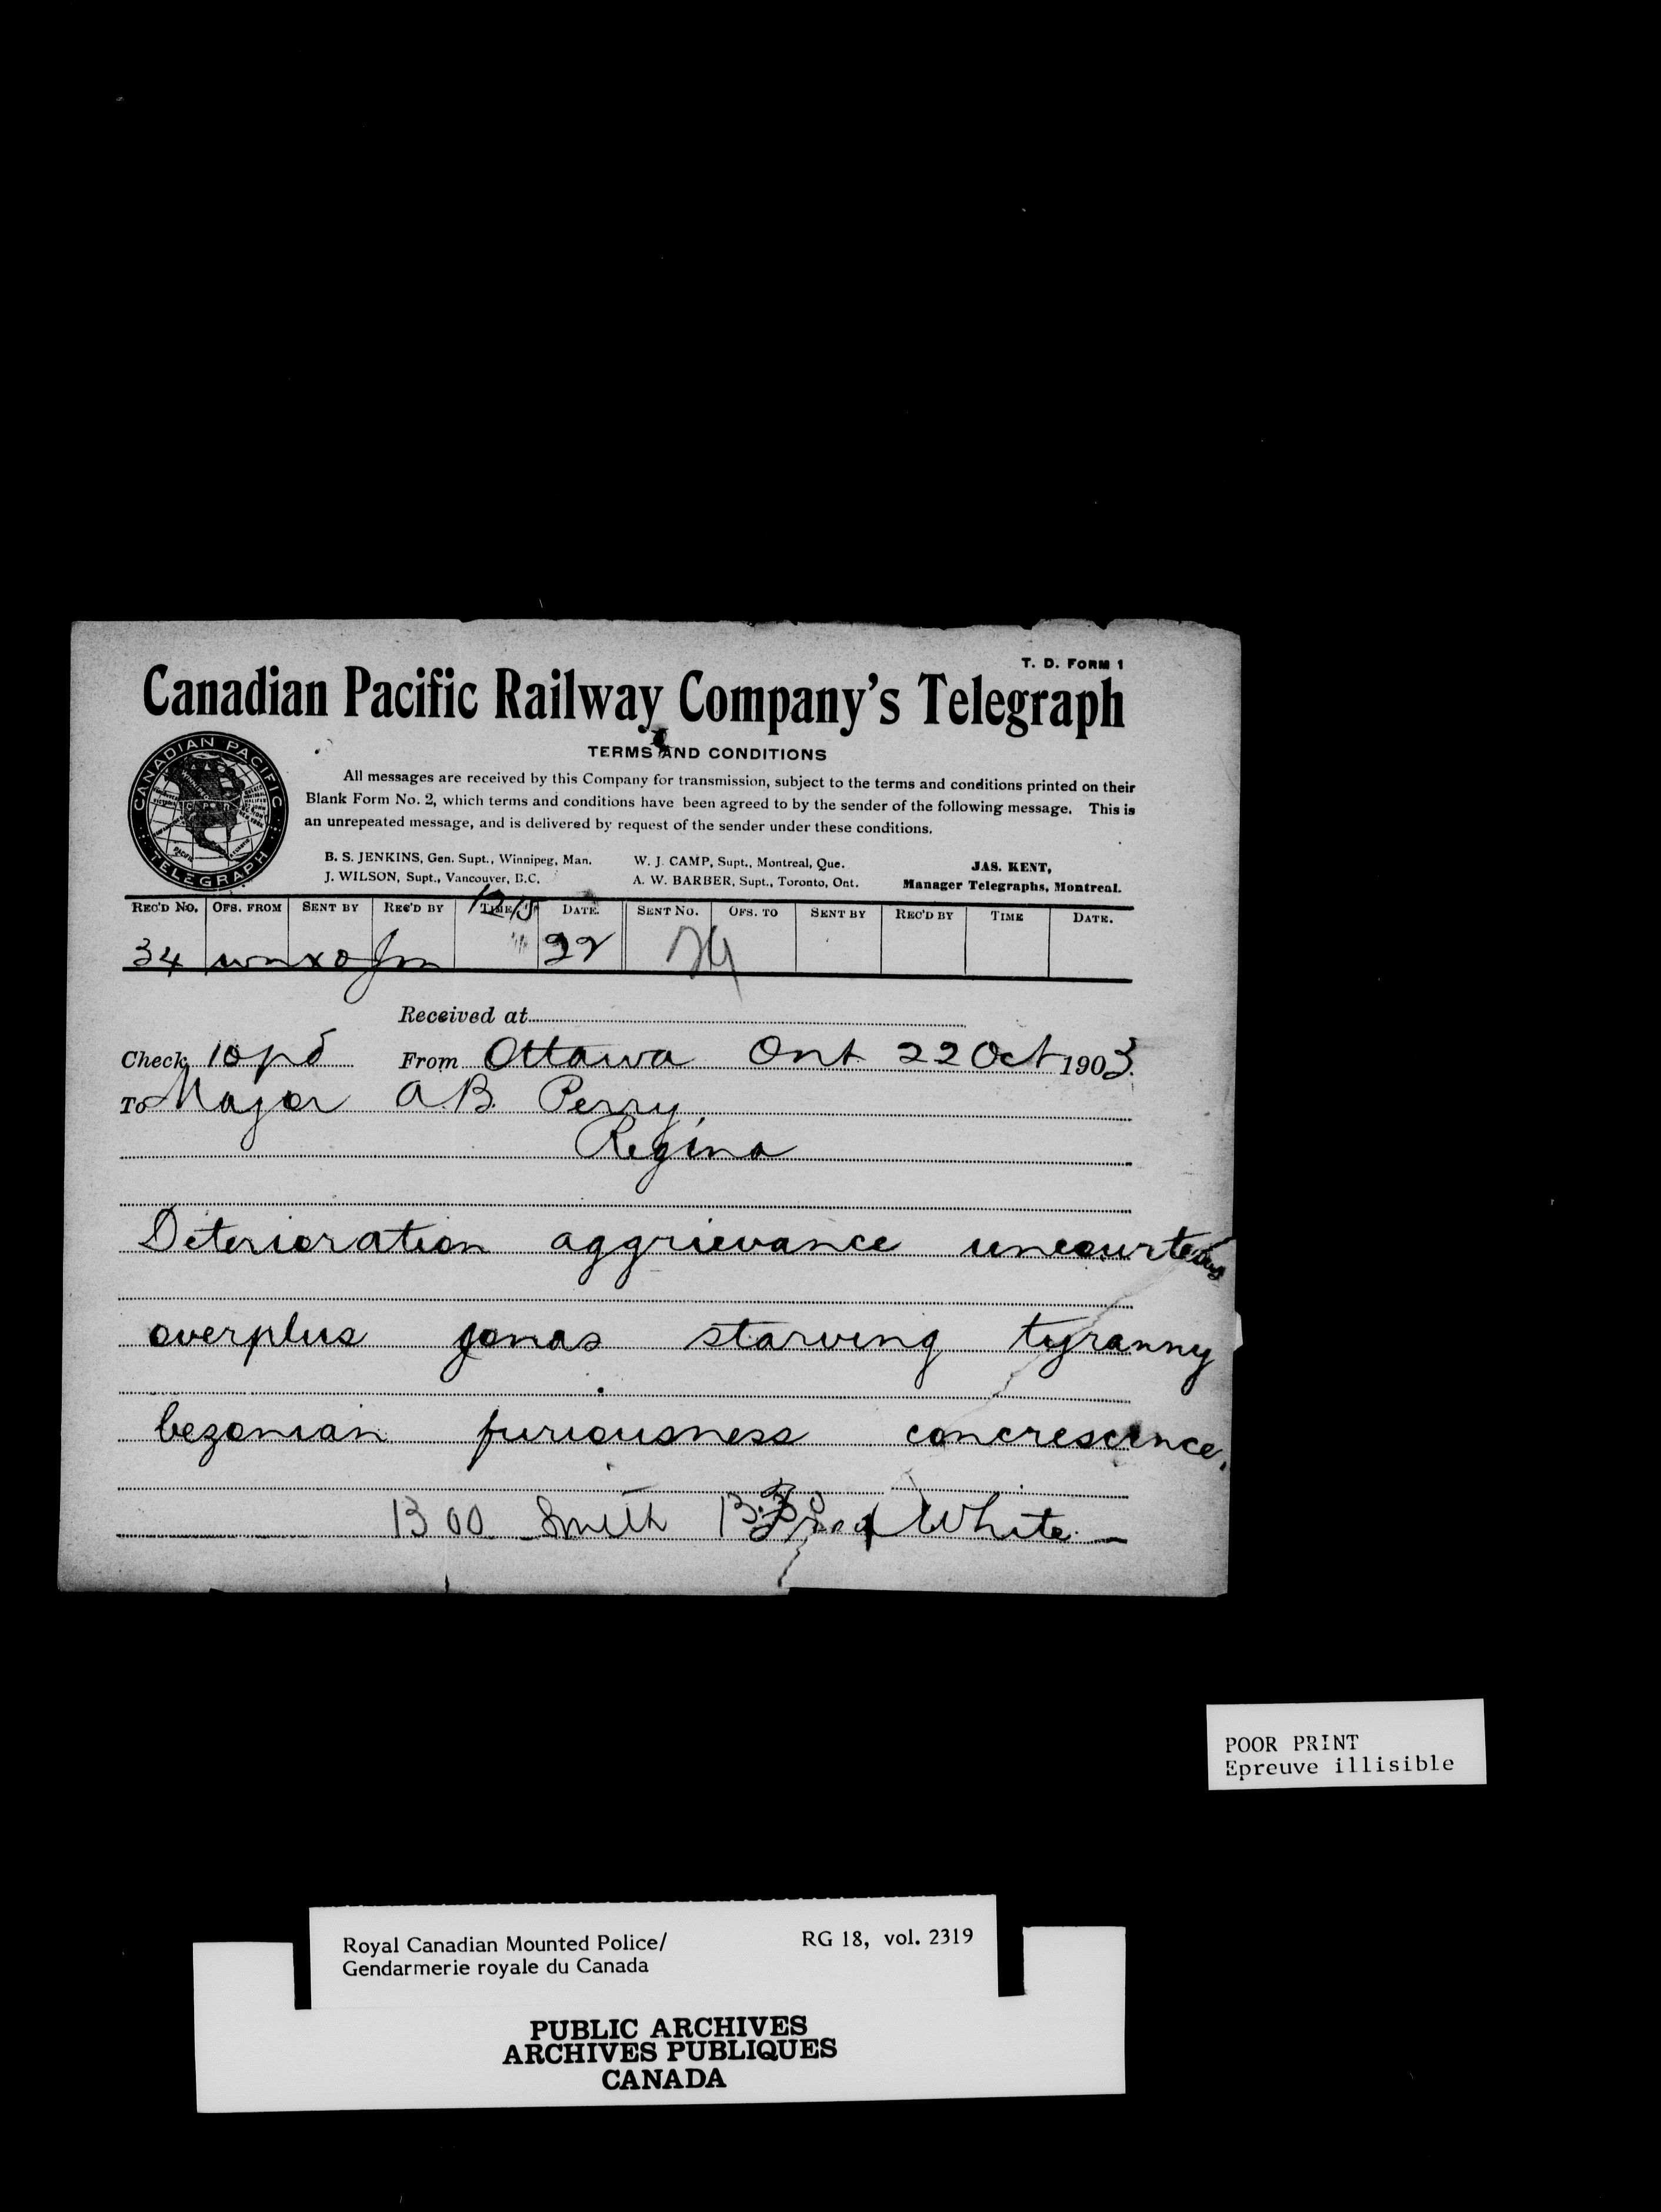 T. D. FORM 1
Canadian Pacific Railway Company's Telegraph
TERMS AND CONDITIONS
CANADIAN PACIFIC
TELEGRAPH
All messages are received by this Company for transmission, subject to the terms and conditions printed on their
Blank Form No. 2, which terms and conditions have been agreed to by the sender of the following message. This is
an unrepeated message, and is delivered by request of the sender under these conditions.
B. S. JENKINS, Gen. Supt., Winnipeg, Man. W. J. CAMP, Supt., Montreal, Que. JAS. KENT,
J. WILSON, Supt., Vancouver, B.C. A. W. BARBER, Supt., Toronto, Ont. Manager Telegraphs, Montreal.
REC'D NO. OFS. FROM SENT BY REC'D BY TIME DATE. SENT NO. OFS. TO SENT BY REC'D BY TIME DATE.
34 22
Received at
Check 10 pd From Ottawa Ont 22 Oct 1903
To Major A.B. Perry
Regina
Deterioration aggrievance uncourteous
overplus jonas starving tyranny
bezonian furiousness concrescence.
Smith Fred White
POOR PRINT
Epreuve illisible
Royal Canadian Mounted Police/ RG 18, vol. 2319
Gendarmerie royale du Canada
PUBLIC ARCHIVES
ARCHIVES PUBLIQUES
CANADA